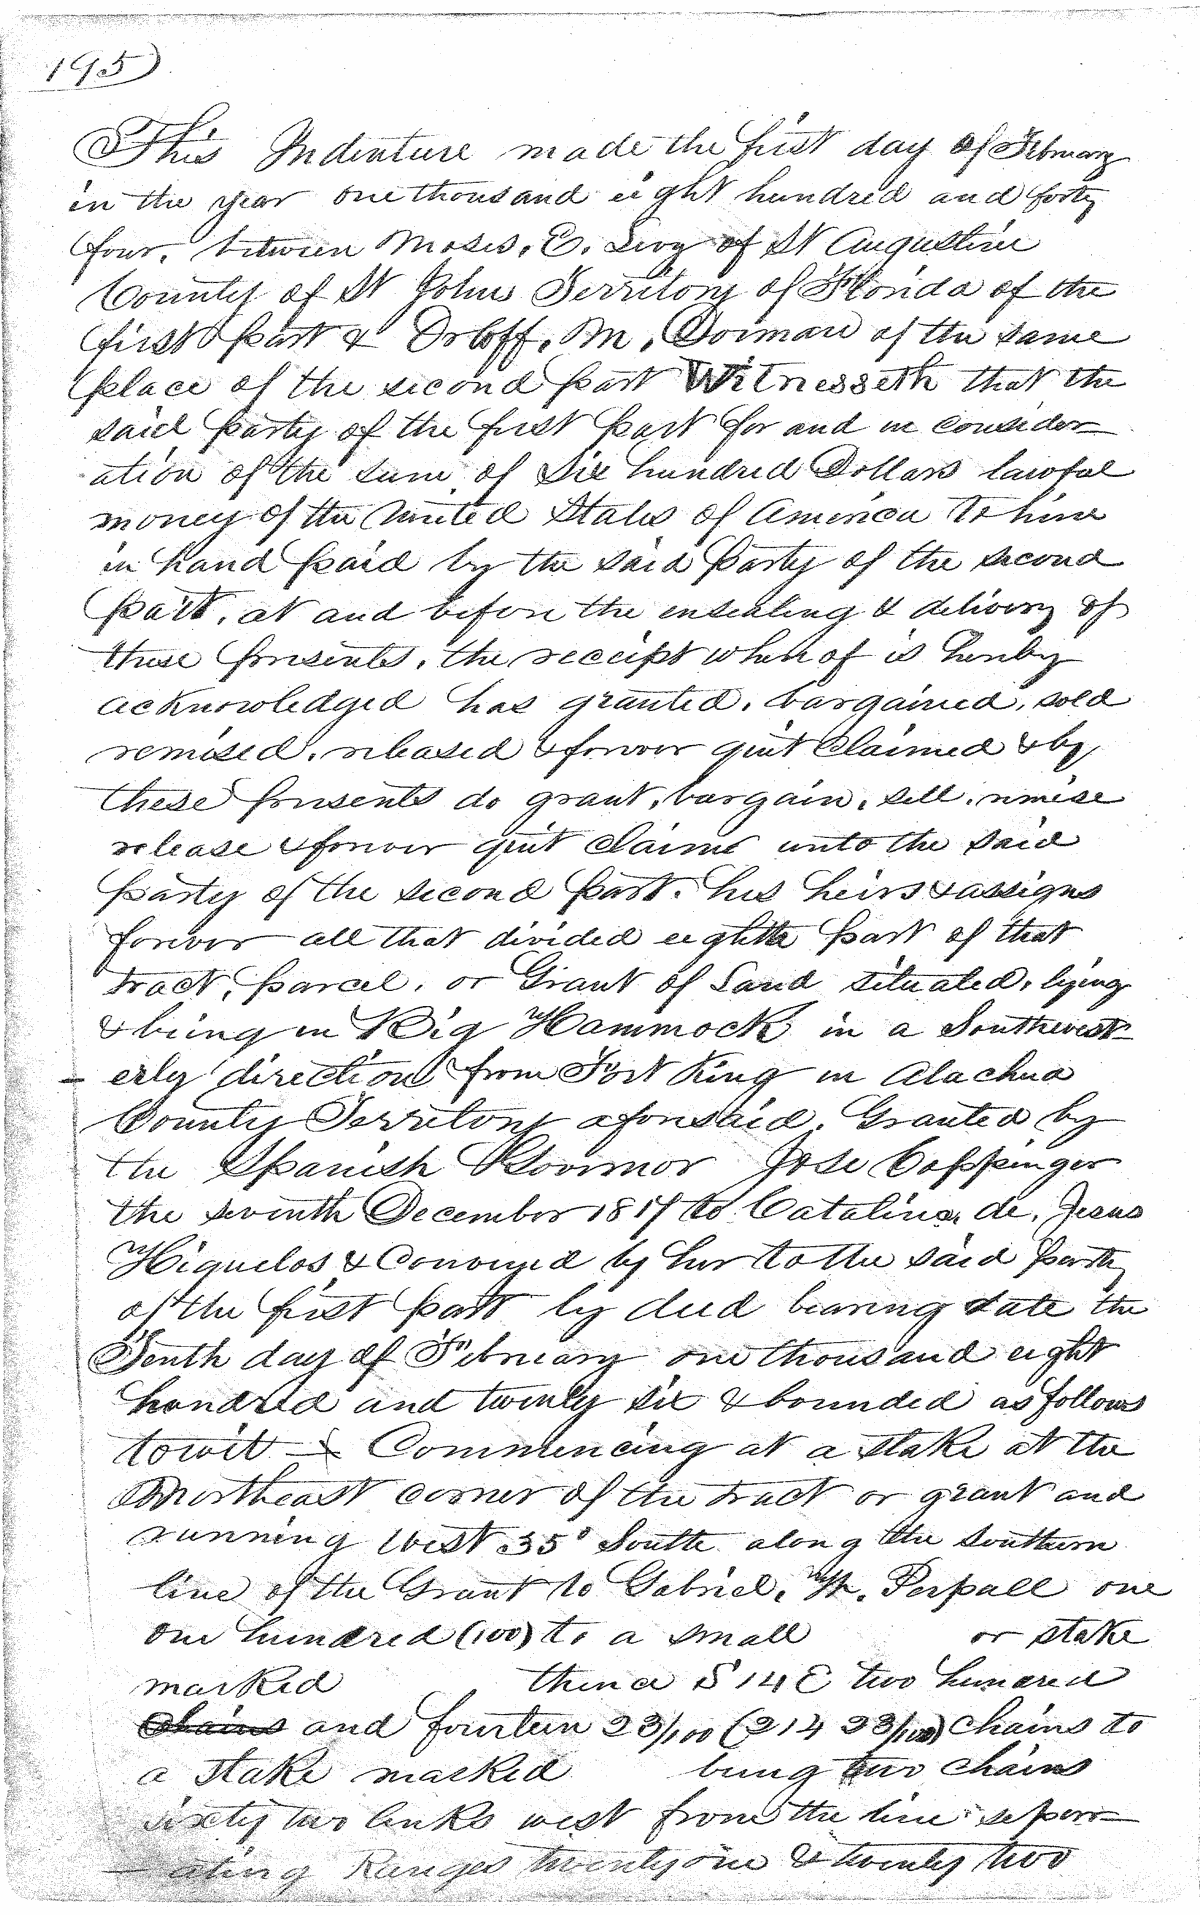 195
This Indenture made the first day of February
in the year one thousand eight hundred and forty
four, between Moses. E. Levy of St Augustine
County of St Johns Territory of Florida of the
first part & Orloff. M. Dorman of the same
place of the second part Witnesseth that the
said party of the first part for and in consider=
ation of the sum of Six hundred Dollars lawful
money of the United States of America to him
in hand paid by the said party of the second
part, at and before the ensealing & delivery of
these presents, the receipt whereof is hereby
acknowledged has granted, bargained, sold
remised, released & forever quit claimed & by
these presents do grant, bargain, sell, remise
release & forever quit claim unto the said
party of the second part. his heirs & assigns
forever all that divided eighth part of that
tract, parcel, or Grant of Land situated, lying
& being in Big Hammock in a Southwest=
erly direction from Fort King in Alachua
County Territory aforesaid. Granted by
the Spanish Governor Jose Coppinger
the seventh December 1817 to Catalina. de. Jesus
Higuelos & Conveyed by her to the said party
of the first part by deed bearing date the
Tenth day of February one thousand eight
hundred and twenty six & bounded as follows
towit Commencing at a stake at the
Northeast corner of the tract or grant and
running West 35° South along the southern
line of the Grant to Gabriel. W. Perpall one
one hundred (100) to a small or stake
marked thence S 14 E two hundred
chains and fourteen 23/100 (214 23/100) Chains to
a stake marked being two chains
sixty two links west from the line seper=
ating Ranges twenty one & twenty two